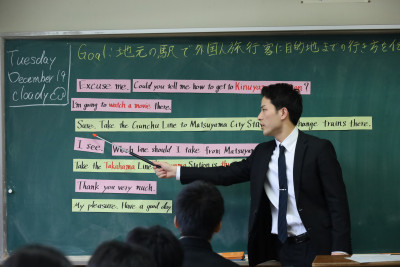 Tuesday
December 19
cloudy
Goal: 地元の駅で外国人旅行客に目的地までの行き方を
Excuse me. Could you tell me how to get to Kiryu
I'm going to watch a movie there.
Sure. Take the Gunchu Line to Matsuyama City Sta change trains there.
I see. Which line should I take from Matsuyama
Take the Takahama Line. Station is the
Thank you very much.
My pleasure. Have a good day